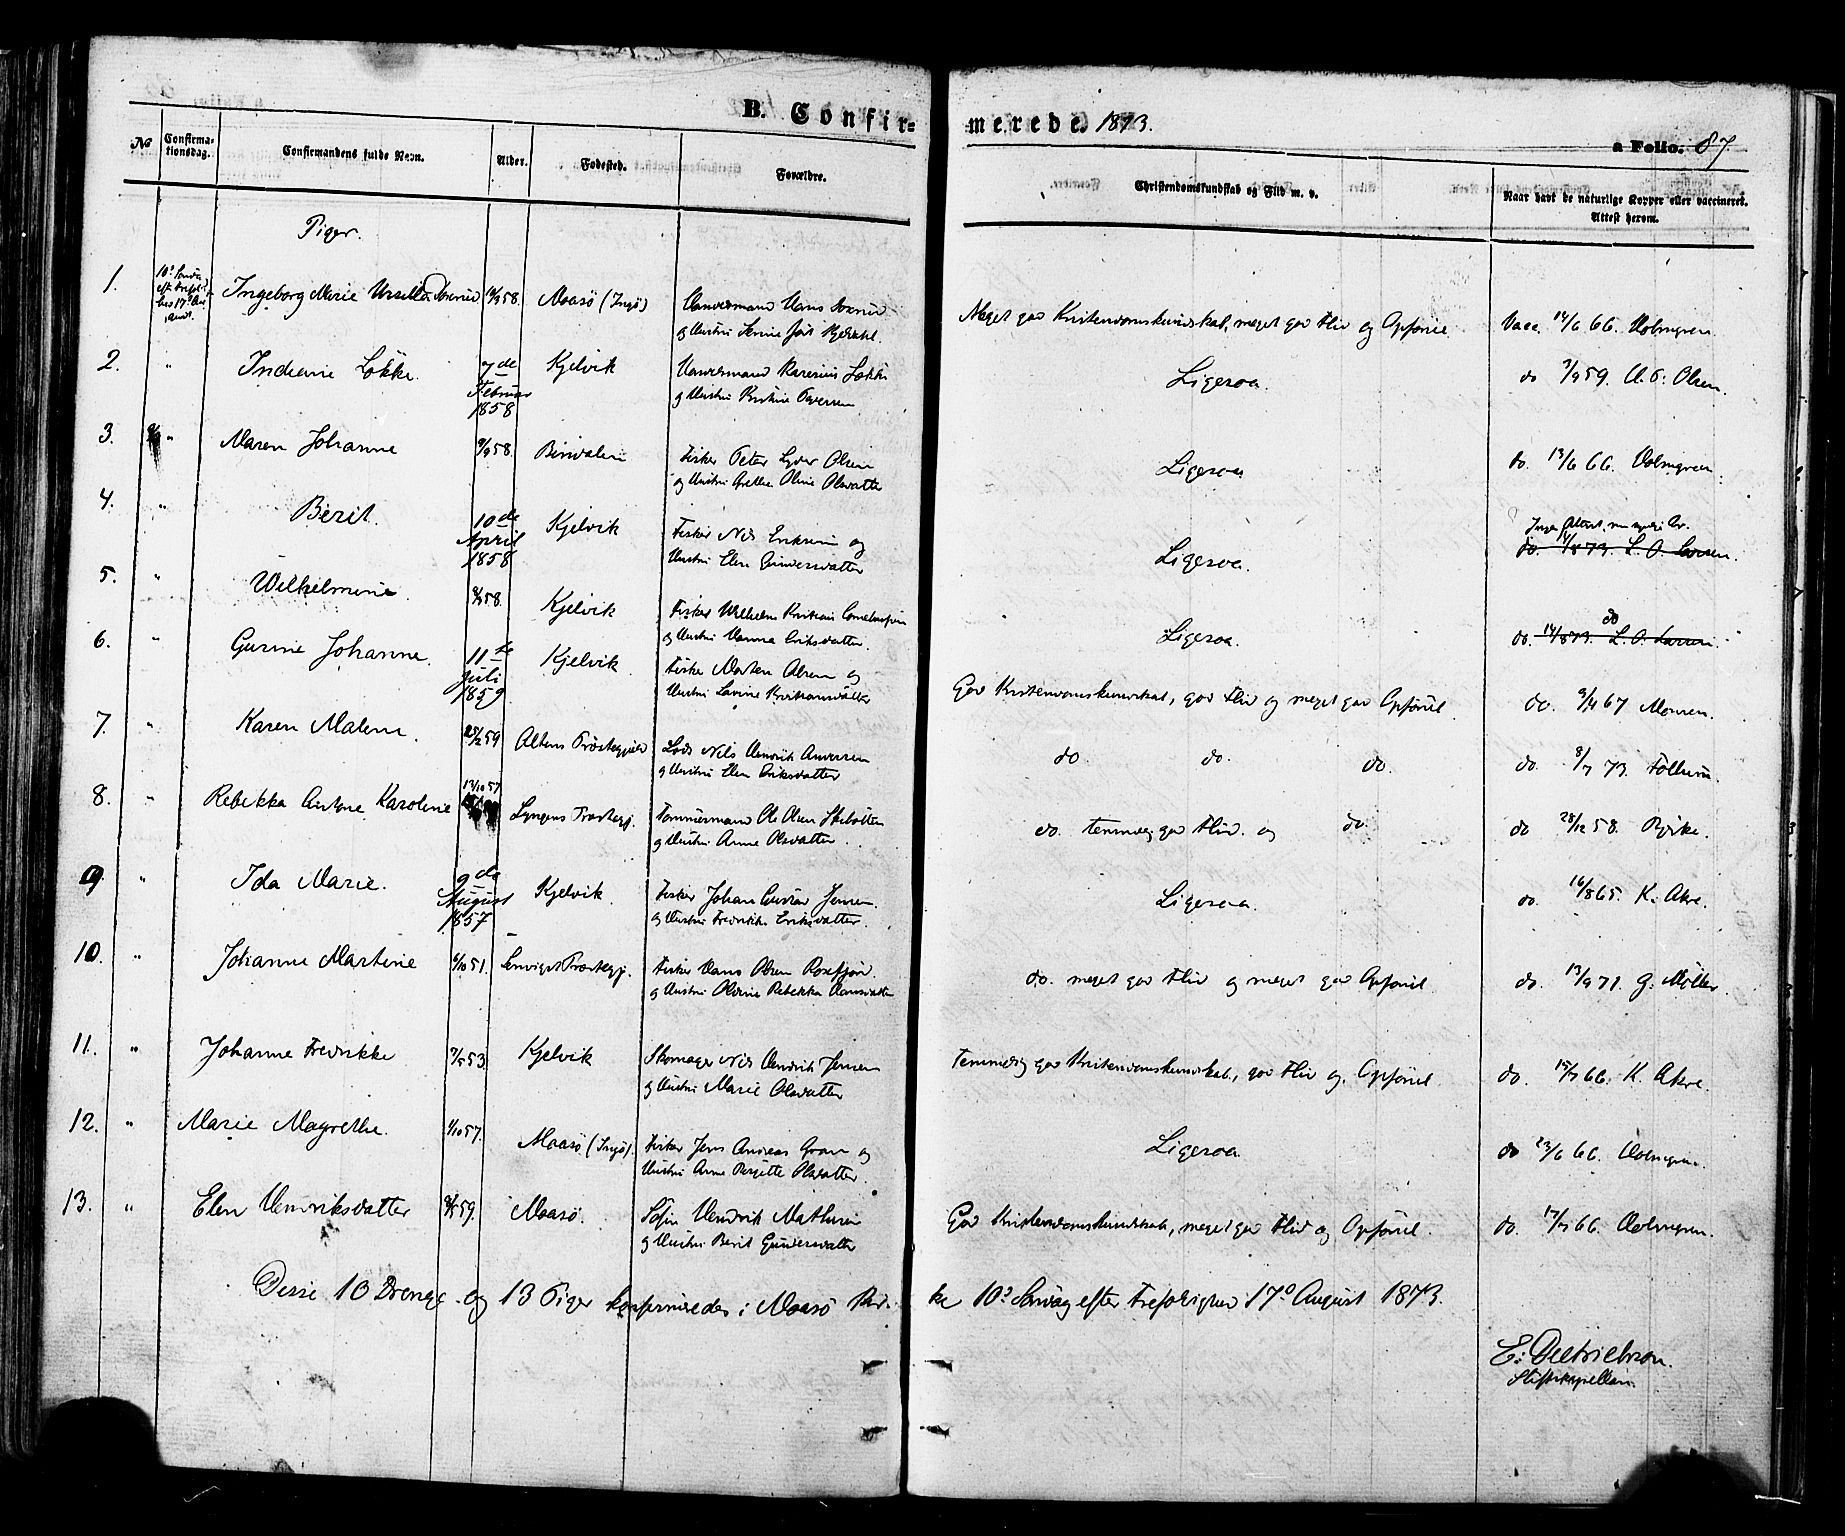 B. Confir=
merede. 1873.
a Folio. 87.
No
Confirma-
tionsdag.
Confirmandens fulde Navn.
Alder.
Fodested.
Forældre.
Christendomskundskab og Flid m. v.
Naar havt de naturlige Kopper eller vaccineret.
Attest herom.
Piger.
1. Ingeborg Marie 58. Maasö (Ingö)
og Hustru
Meget god Kristendomskundskab, meget god Flid og Opförsel. Vacc. 14/6 66. Holmgren
2. " Indiane Løkke. 7de Februar 1858 Kjelvik
og Hustru
Ligesaa. do 59. Olsen.
3. " Maren Johanne 58. Fisker Peter Olsen
og Hustru Oline Olsdatter
Ligesaa do. 13/6 66. Holmgren.
4. " Berit. 10de April 1858 Kjelvik Fisker Nils Eriksen og
Hustru Elen Gundersdatter
Ligesaa. Ingen Attest
do. 73. L. O. Larsen.
5. " Wilhelmine. 58. Kjelvik Fisker Wilhelm Kristian
og Hustru Hanna Eriksdatter.
Ligesaa. do
do. 14/8 73. L. O. Larsen.
6. " Gurine Johanne. 11te Juli 1859 Kjelvik. Fisker Morten Olsen og
Hustru Lovine Kristiansdatter
God Kristendomskundskab, god Flid og meget god Opförsel. do. 67
7. " Karen Malene. 59 Altens Præstegjeld Lods Nils Hendrik Andersen
og Hustru Elen Eriksdatter
do. do. do. do. 73.
8. " Rebekka Antone Karoline 13/10 57 Lyngens Præstegj. Tömmermand Ole Olsen
og Hustru Anne Olsdatter.
do. temmelig god Flid. og do. do 28/12 58.
9 " Ida Marie. 9de August 1857 Kjelvik. Fisker Johan Gustav Jensen.
og Hustru Fredrikke Eriksdatter.
Ligesaa. do. 16/8 65. K. Akre.
10. " Johanne Martine 51. Præstegj. Fisker Hans Olsen
og Hustru Rebekka Hansdatter
do. meget god Flid og meget god Opförsel do. 13/9 71. G. Möller.
11. " Johanne Fredrikke 53. Kjelvik Skomager Nils Hendrik Jensen
og Hustru Marie Olsdatter
Temmelig god Kristendomskundskab, god Flid og Opförsel do. 66. K. Akre.
12. " Marie Magrethe. 57. Maasö (Ingö). Fisker Jens Andreas og
Hustru Anne Birgitte Olsdatter.
Ligesaa do 23/6 66. Holmgren.
13. " Elen Hendriksdatter 59. Maasö. Hendrik Mathisen
og Hustru Berit Gundersdatter
God Kristendomskundskab, meget god Flid og Opförsel. do. 66. Holmgren.
Disse 10 Drenge og 13 Piger konfirmeredes i Maasö Kir-
ke 10de Søndag efter Trefoldighed 17de August 1873.
E. Dietrichson.
Stiftskapellan.